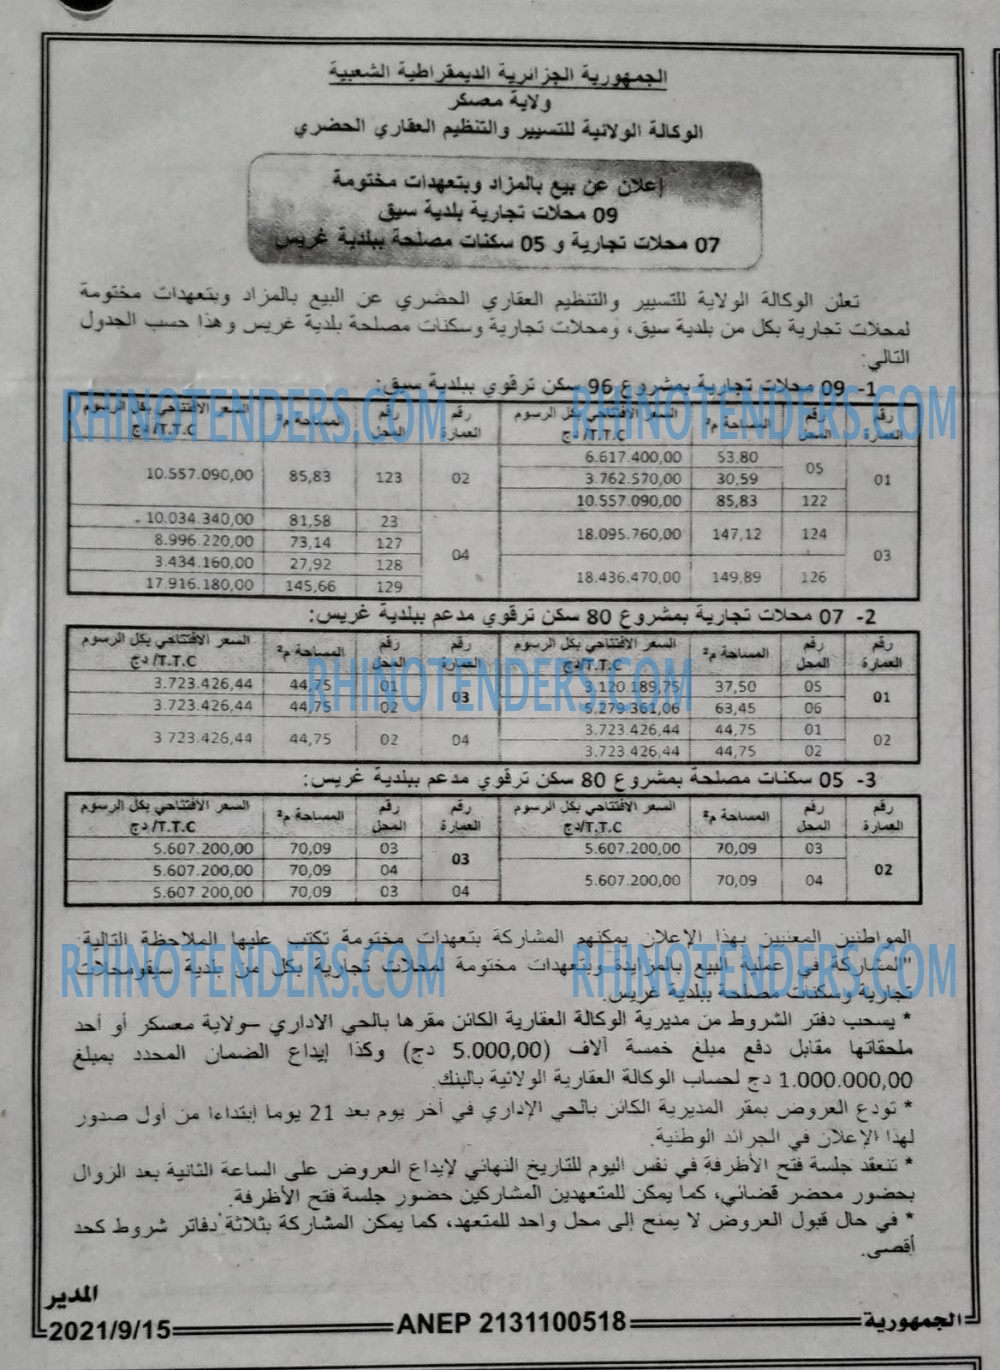 الجمهورية الجزائرية الديمقراطية الشعبية
ولاية معسكر
الوكالة الولائية للتسيير والتنظيم العقاري الحضري
إعلان عن بيع بالمزاد وبتعهدات مختومة
09 محلات تجارية بلدية سيق
07 محلات تجارية و 05 سكنات مصلحة ببلدية غريس
تعلن الوكالة الولاية للتسيير والتنظيم العقاري الحضري عن البيع بالمزاد وبتعهدات مختومة
لمحلات تجارية بكل من بلدية سيق، ومحلات تجارية وسكنات مصلحة بلدية غريس وهذا حسب الجدول
التالي:
1- 09 محلات تجارية بمشروع 96 سكن ترقوي ببلدية سيق:
رقم العمارة | رقم المحل | المساحة م² | السعر الافتتاحي بكل الرسوم T.T.C/دج | رقم العمارة | رقم المحل | المساحة م² | السعر الافتتاحي بكل الرسوم T.T.C/دج
01 | 05 | 53,80 | 6.617.400,00 | 02 | 123 | 85,83 | 10.557.090,00
30,59 | 3.762.570,00
122 | 85,83 | 10.557.090,00
03 | 124 | 147,12 | 18.095.760,00 | 04 | 23 | 81,58 | 10.034.340,00
127 | 73,14 | 8.996.220,00
126 | 149,89 | 18.436.470,00 | 128 | 27,92 | 3.434.160,00
129 | 145,66 | 17.916.180,00
2- 07 محلات تجارية بمشروع 80 سكن ترقوي مدعم ببلدية غريس:
رقم العمارة | رقم المحل | المساحة م² | السعر الافتتاحي بكل الرسوم T.T.C/دج | رقم العمارة | رقم المحل | المساحة م² | السعر الافتتاحي بكل الرسوم T.T.C/دج
01 | 05 | 37,50 | 3.120.189,75 | 03 | 01 | 44,75 | 3.723.426,44
06 | 63,45 | 5.279.361,06 | 02 | 44,75 | 3.723.426,44
02 | 01 | 44,75 | 3.723.426,44 | 04 | 02 | 44,75 | 3.723.426,44
02 | 44,75 | 3.723.426,44
3- 05 سكنات مصلحة بمشروع 80 سكن ترقوي مدعم ببلدية غريس:
رقم العمارة | رقم المحل | المساحة م² | السعر الافتتاحي بكل الرسوم T.T.C/دج | رقم العمارة | رقم المحل | المساحة م² | السعر الافتتاحي بكل الرسوم T.T.C/دج
02 | 03 | 70,09 | 5.607.200,00 | 03 | 03 | 70,09 | 5.607.200,00
04 | 70,09 | 5.607.200,00 | 04 | 70,09 | 5.607.200,00
04 | 03 | 70,09 | 5.607.200,00
المواطنين المعنيين بهذا الإعلان يمكنهم المشاركة بتعهدات مختومة تكتب عليها الملاحظة التالية:
"المشاركة في عملية البيع بالمزايدة وبتعهدات مختومة لمحلات تجارية بكل من بلدية سيقومحلات
تجارية وسكنات مصلحة ببلدية غريس.
* يسحب دفتر الشروط من مديرية الوكالة العقارية الكائن مقرها بالحي الاداري –ولاية معسكر أو أحد
ملحقاتها مقابل دفع مبلغ خمسة آلاف (5.000,00 دج) وكذا إيداع الضمان المحدد بمبلغ
1.000.000,00 دج لحساب الوكالة العقارية الولائية بالبنك.
* تودع العروض بمقر المديرية الكائن بالحي الإداري في آخر يوم بعد 21 يوما إبتداءا من أول صدور
لهذا الإعلان في الجرائد الوطنية.
* تنعقد جلسة فتح الأظرفة في نفس اليوم للتاريخ النهائي لإيداع العروض على الساعة الثانية بعد الزوال
بحضور محضر قضائي، كما يمكن للمتعهدين المشاركين حضور جلسة فتح الأظرفة.
* في حال قبول العروض لا يمنح إلى محل واحد للمتعهد، كما يمكن المشاركة بثلاثة دفاتر شروط كحد
أقصى.
المدير
الجمهورية ANEP 2131100518 2021/9/15
RHINOTENDERS.COM
RHINOTENDERS.COM
RHINOTENDERS.COM
RHINOTENDERS.COM
RHINOTENDERS.COM